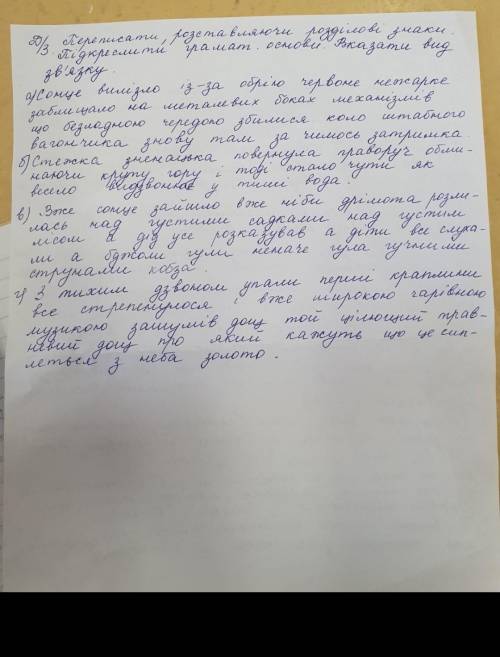 Д/з. Переписати, розставляючи розділові знаки.
Підкреслити грамат. основи. Вказати вид
зв'язку.
а) Сонце вилізло із-за обрію червоне нежарке
заблищало на металевих боках механізмів
що безладною чередою збилися коло штабного
вагончика знову там за чимось затримка.
б) Стежка зненацька повернула праворуч обми-
наючи круту гору і тоді стало чути як
весело видзвонює у тиші вода.
в) Вже сонце зайшло вже ніби дрімота розли-
лась над густими садками над густим
лісом а дід усе розказував а діти все слуха-
ли а бджоли гули неначе гула гучними
струнами кобза.
г) З тихим дзвоном упали перші краплини
все стрепенулося і вже широкою чарівною
музикою зашумів дощ той цілющий трав-
невий дощ про який кажуть що це сип-
леться з неба золото.